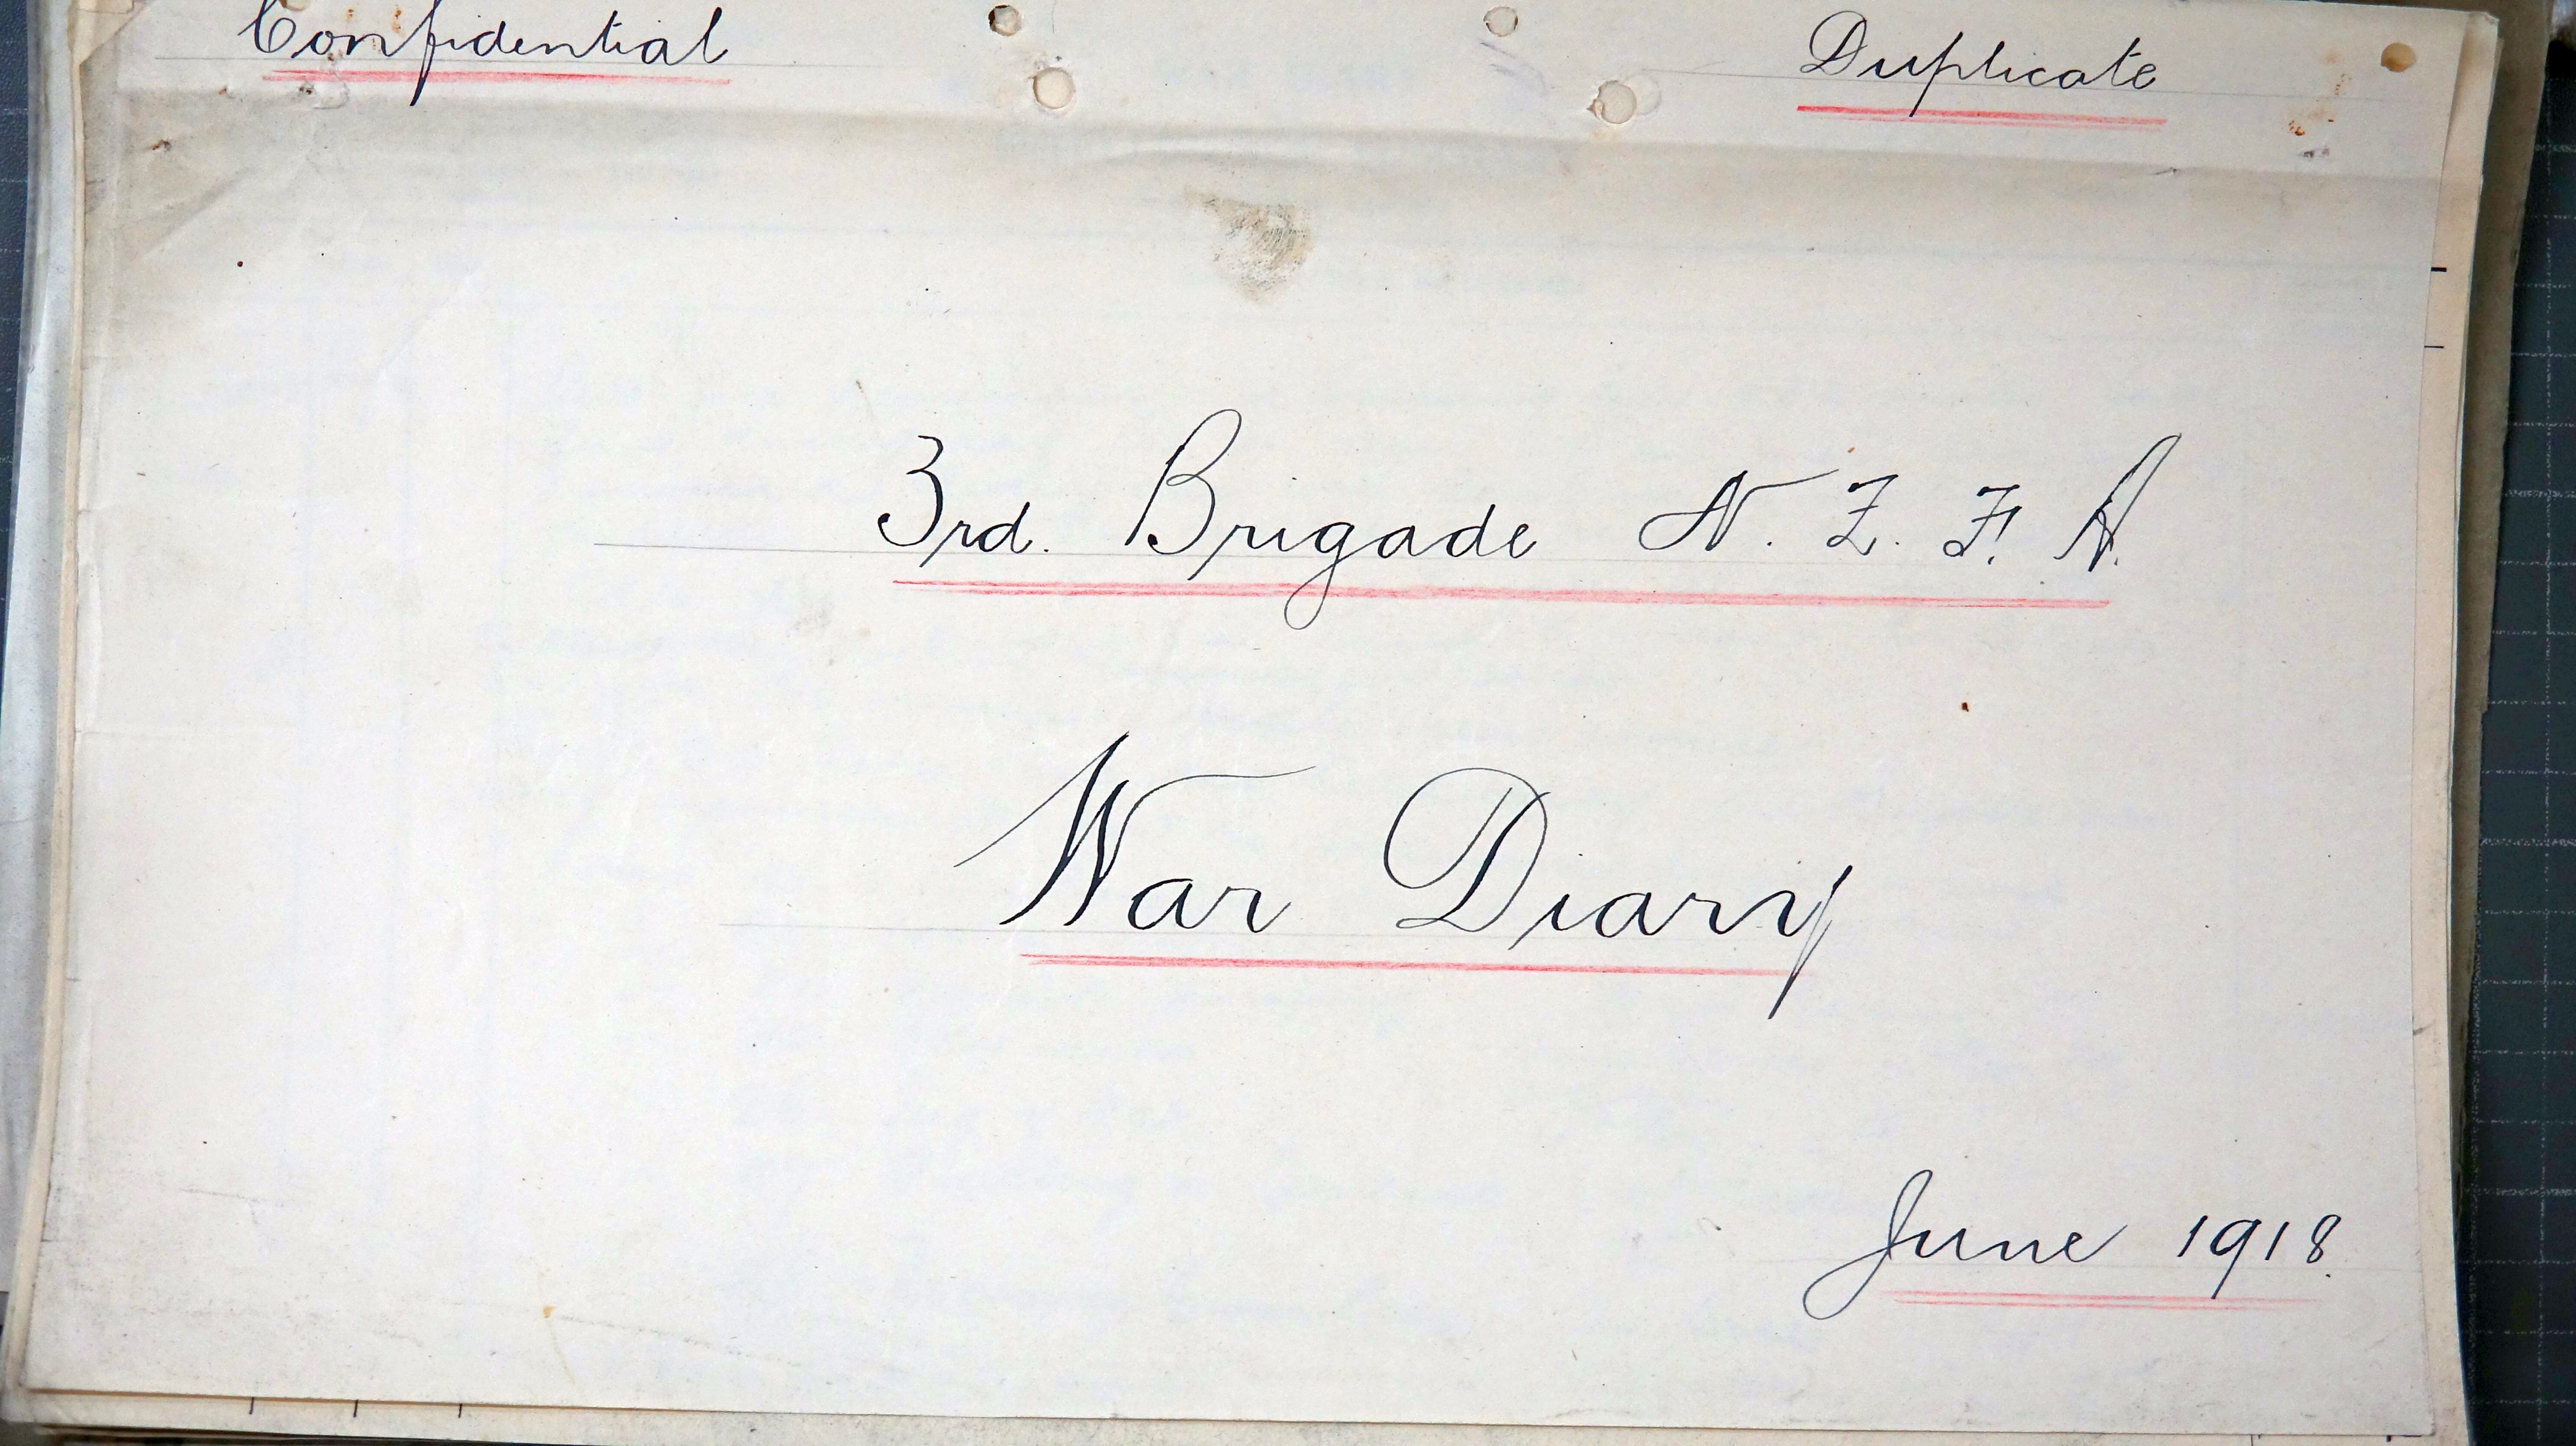 Confidential Duplicate
3rd. Brigade N. Z. F. A.
War Diary
June 1918.